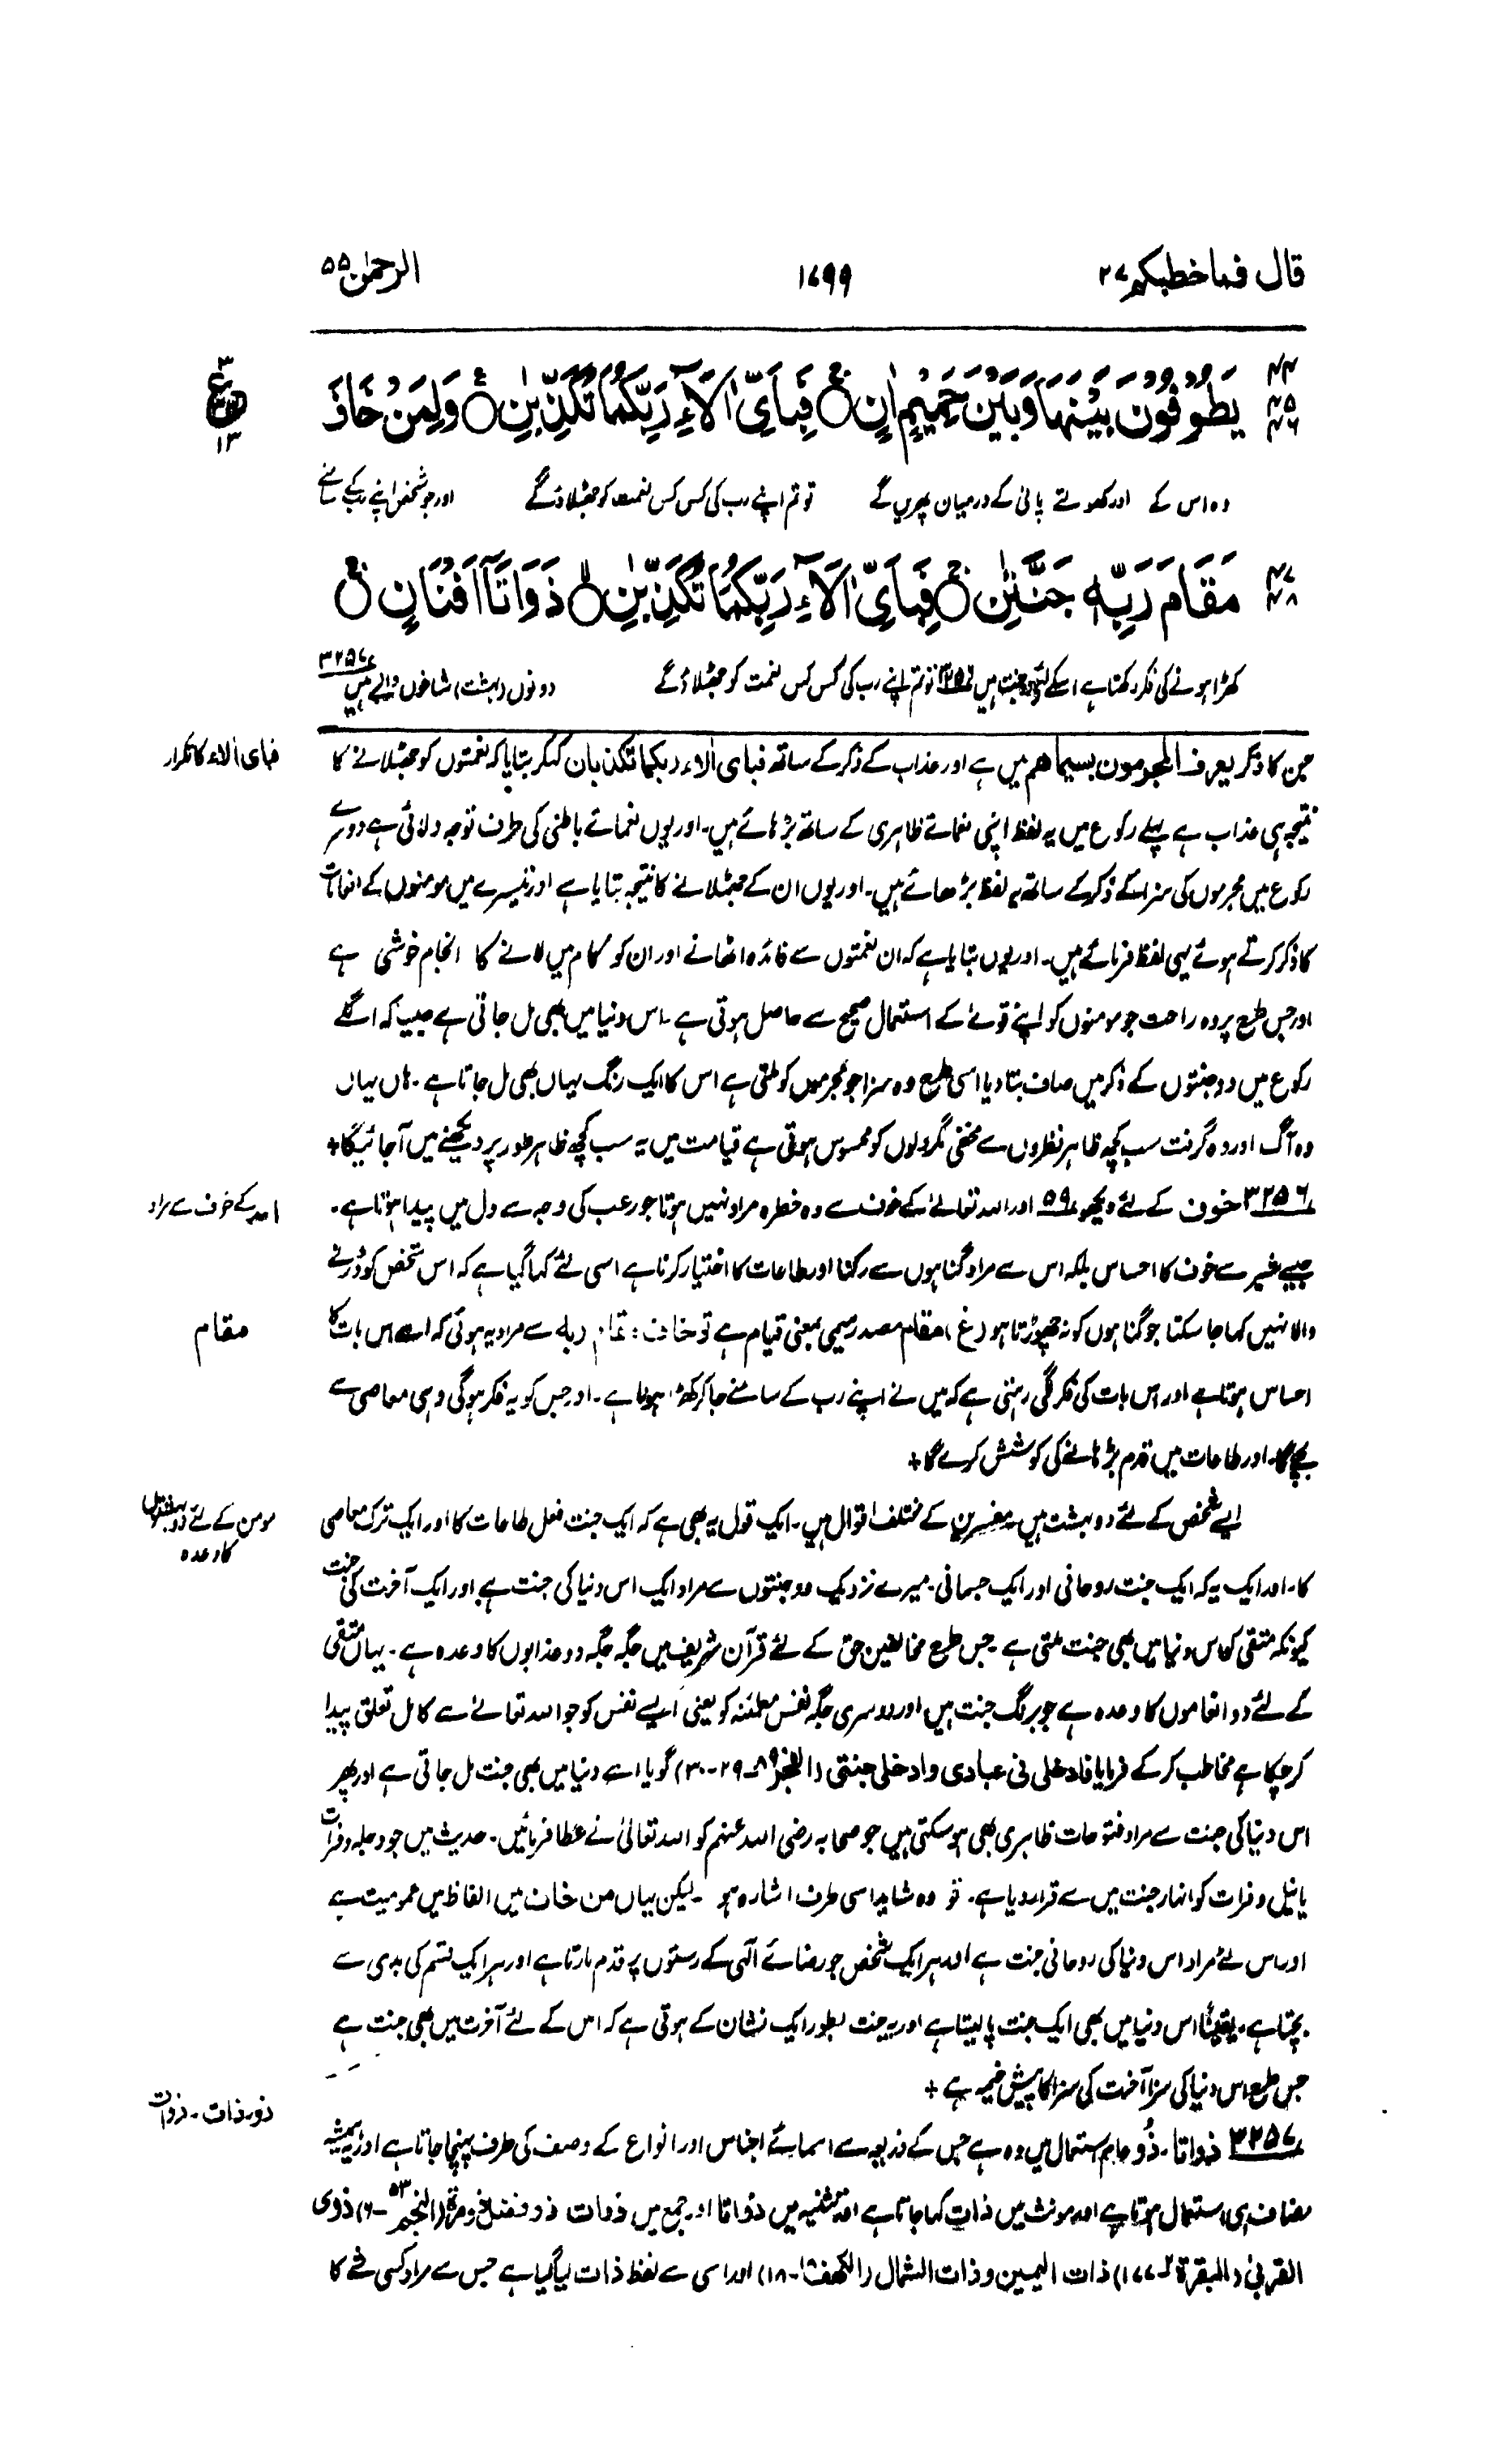 قال فما خطبکم ۲۷
۱۷۹۹
الرحمٰن ۵۵
۴۴
۴۵
۴۶
يَطُوۡفُوۡنَ بَيۡنَهَا وَبَيۡنَ حَمِيۡمٍ اٰنٍ ۚ فَبِاَىِّ اٰلَآءِ رَبِّكُمَا تُكَذِّبٰنِ ۠ وَلِمَنۡ خَافَ
۳
ع
۱۳
وہ اس کے اور کھولتے پانی کے درمیان پھریں گے تو تم اپنے رب کی کس کس نعمت کو جھٹلاؤ گے اور جو شخص اپنے رب کے سامنے
۴۷
۴۸
مَقَامَ رَبِّهٖ جَنَّتٰنِ ۚ فَبِاَىِّ اٰلَآءِ رَبِّكُمَا تُكَذِّبٰنِ ۙ ذَوَاتَاۤ اَفۡنَانٍ ۚ
کھڑا ہونے کی فکر رکھتا ہے اسکے لئے دو جنت ہیں ۳۲۵۶ تو تم اپنے رب کی کس کس نعمت کو جھٹلاؤ گے دونوں (بہشت) شاخوں والے ہیں ۳۲۵۷
جن کا ذکر یعرف المجرمون بسیماھم میں ہے اور عذاب کے ذکر کے ساتھ فبای اٰلاء ربکما تکذبان کہکر بتایا کہ نعمتوں کو جھٹلانے کا
فبای اٰلاء کا تکرار
نتیجہ ہی عذاب ہے پہلے رکوع میں یہ لفظ اپنی نعمائے ظاہری کے ساتھ بڑھائے ہیں۔ اور یوں نعمائے باطنی کی طرف توجہ دلائی ہے دوسرے
رکوع میں مجرموں کی سزا کے ذکر کے ساتھ یہ لفظ بڑھائے ہیں۔ اور یوں ان کے جھٹلانے کا نتیجہ بتایا ہے اور تیسرے میں مومنوں کے انعامات
کا ذکر کرتے ہوئے یہی لفظ فرمائے ہیں۔ اور یوں بتایا ہے کہ ان نعمتوں سے فائدہ اٹھانے اور ان کو کام میں لانے کا انجام خوشی ہے
اور جس طرح پر وہ راحت جو مومنوں کو اپنے قویٰ کے استعمال صحیح سے حاصل ہوتی ہے۔ اس دنیا میں بھی مل جاتی ہے جیسا کہ اگلے
رکوع میں دو جنتوں کے ذکر میں صاف بتا دیا اسی طرح وہ سزا جو مجرموں کو ملتی ہے اس کا ایک رنگ یہاں بھی مل جاتا ہے۔ ہاں یہاں
وہ آگ اور وہ گرفت سب کچھ ظاہر نظروں سے مخفی مگر دلوں کو محسوس ہوتی ہے قیامت میں یہ سب کچھ ظاہر طور پر دیکھنے میں آجائیگا+
۳۲۵۶ خوف کے لئے دیکھو ۵۹ اور اللہ تعالےٰ کے خوف سے وہ خطرہ مراد نہیں ہوتا جو رعب کی وجہ سے دل میں پیدا ہوتا ہے۔
اللہ کے خوف سے مراد
جیسے شیر سے خوف کا احساس بلکہ اس سے مراد گناہوں سے رکنا اور طاعات کا اختیار کرنا ہے اسی لئے کہا گیا ہے کہ اس شخص کو ڈرنے
والا نہیں کہا جا سکتا جو گناہوں کو نہ چھوڑتا ہو (غ) مقام مصدر میمی بمعنی قیام ہے تو خاف مقام ربہ سے مراد یہ ہوئی کہ اسے اس بات کا
مقام
احساس ہوتا ہے اور اس بات کی فکر لگی رہتی ہے کہ میں نے اپنے رب کے سامنے جا کر کھڑا ہونا ہے۔ اور جس کو یہ فکر ہوگی وہی معاصی سے
بچے گا۔ اور طاعات میں قدم بڑھانے کی کوشش کرے گا+
ایسے شخص کے لئے دو بہشت ہیں مفسرین کے مختلف اقوال ہیں۔ ایک قول یہ بھی ہے کہ ایک جنت فعل طاعات کا اور ایک ترک معاصی
مومن کے لئے دو بہشتوں
کا وعدہ
کا۔ اور ایک یہ کہ ایک جنت روحانی اور ایک جسمانی۔ میرے نزدیک دو جنتوں سے مراد ایک اس دنیا کی جنت ہے اور ایک آخرت کی جنت
کیونکہ متقی کو اس دنیا میں بھی جنت ملتی ہے جس طرح مخالفین حق کے لئے قرآن شریف میں جگہ جگہ دو عذابوں کا وعدہ ہے۔ یہاں متقی
کے لئے دو انعاموں کا وعدہ ہے جو برنگ جنت ہیں اور دوسری جگہ نفس مطمئنہ کو یعنی ایسے نفس کو جو اللہ تعالےٰ سے کامل تعلق پیدا
کر چکا ہے مخاطب کر کے فرمایا فادخلی فی عبادی وادخلی جنتی (الفجر ۸۹-۲۹-۳۰) گویا اسے دنیا میں بھی جنت مل جاتی ہے اور پھر
اس دنیا کی جنت سے مراد فتوحات ظاہری بھی ہو سکتی ہیں جو صحابہ رضی اللہ عنہم کو اللہ تعالیٰ نے عطا فرمائیں۔ حدیث میں جو دجلہ و فرات
یا نیل و فرات کو انہار جنت میں سے قرار دیا ہے۔ تو وہ شاید اسی طرف اشارہ ہو۔ لیکن یہاں من خاف میں الفاظ میں عمومیت ہے
اور اس لئے مراد اس دنیا کی روحانی جنت ہے اور ہر ایک شخص جو رضائے الٰہی کے رستوں پر قدم مارتا ہے اور ہر ایک قسم کی بدی سے
بچتا ہے۔ یقیناً اس دنیا میں بھی ایک جنت پا لیتا ہے اور یہ جنت بطور ایک نشان کے ہوتی ہے کہ اس کے لئے آخرت میں بھی جنت ہے
جس طرح اس دنیا کی سزا آخرت کی سزا کا پیش خیمہ ہے +
۳۲۵۷ ذواتا۔ ذُو عام استعمال میں وہ ہے جس کے ذریعہ سے اسمائے اجناس اور انواع کے وصف کی طرف پہنچا جاتا ہے اور یہ ہمیشہ
ذو۔ ذات۔ ذوات
مضاف ہی استعمال ہوتا ہے اور مونث میں ذات کہا جاتا ہے اور تثنیہ میں ذواتا اور جمع میں ذوات ذو مرۃ (النجم ۵۳-۶) ذوی
القربیٰ (البقرۃ ۲-۱۷۷) ذات الیمین وذات الشمال (الکہف ۱۸-۱۸) اور اسی سے لفظ ذات لیا گیا ہے جس سے مراد کسی شے کا